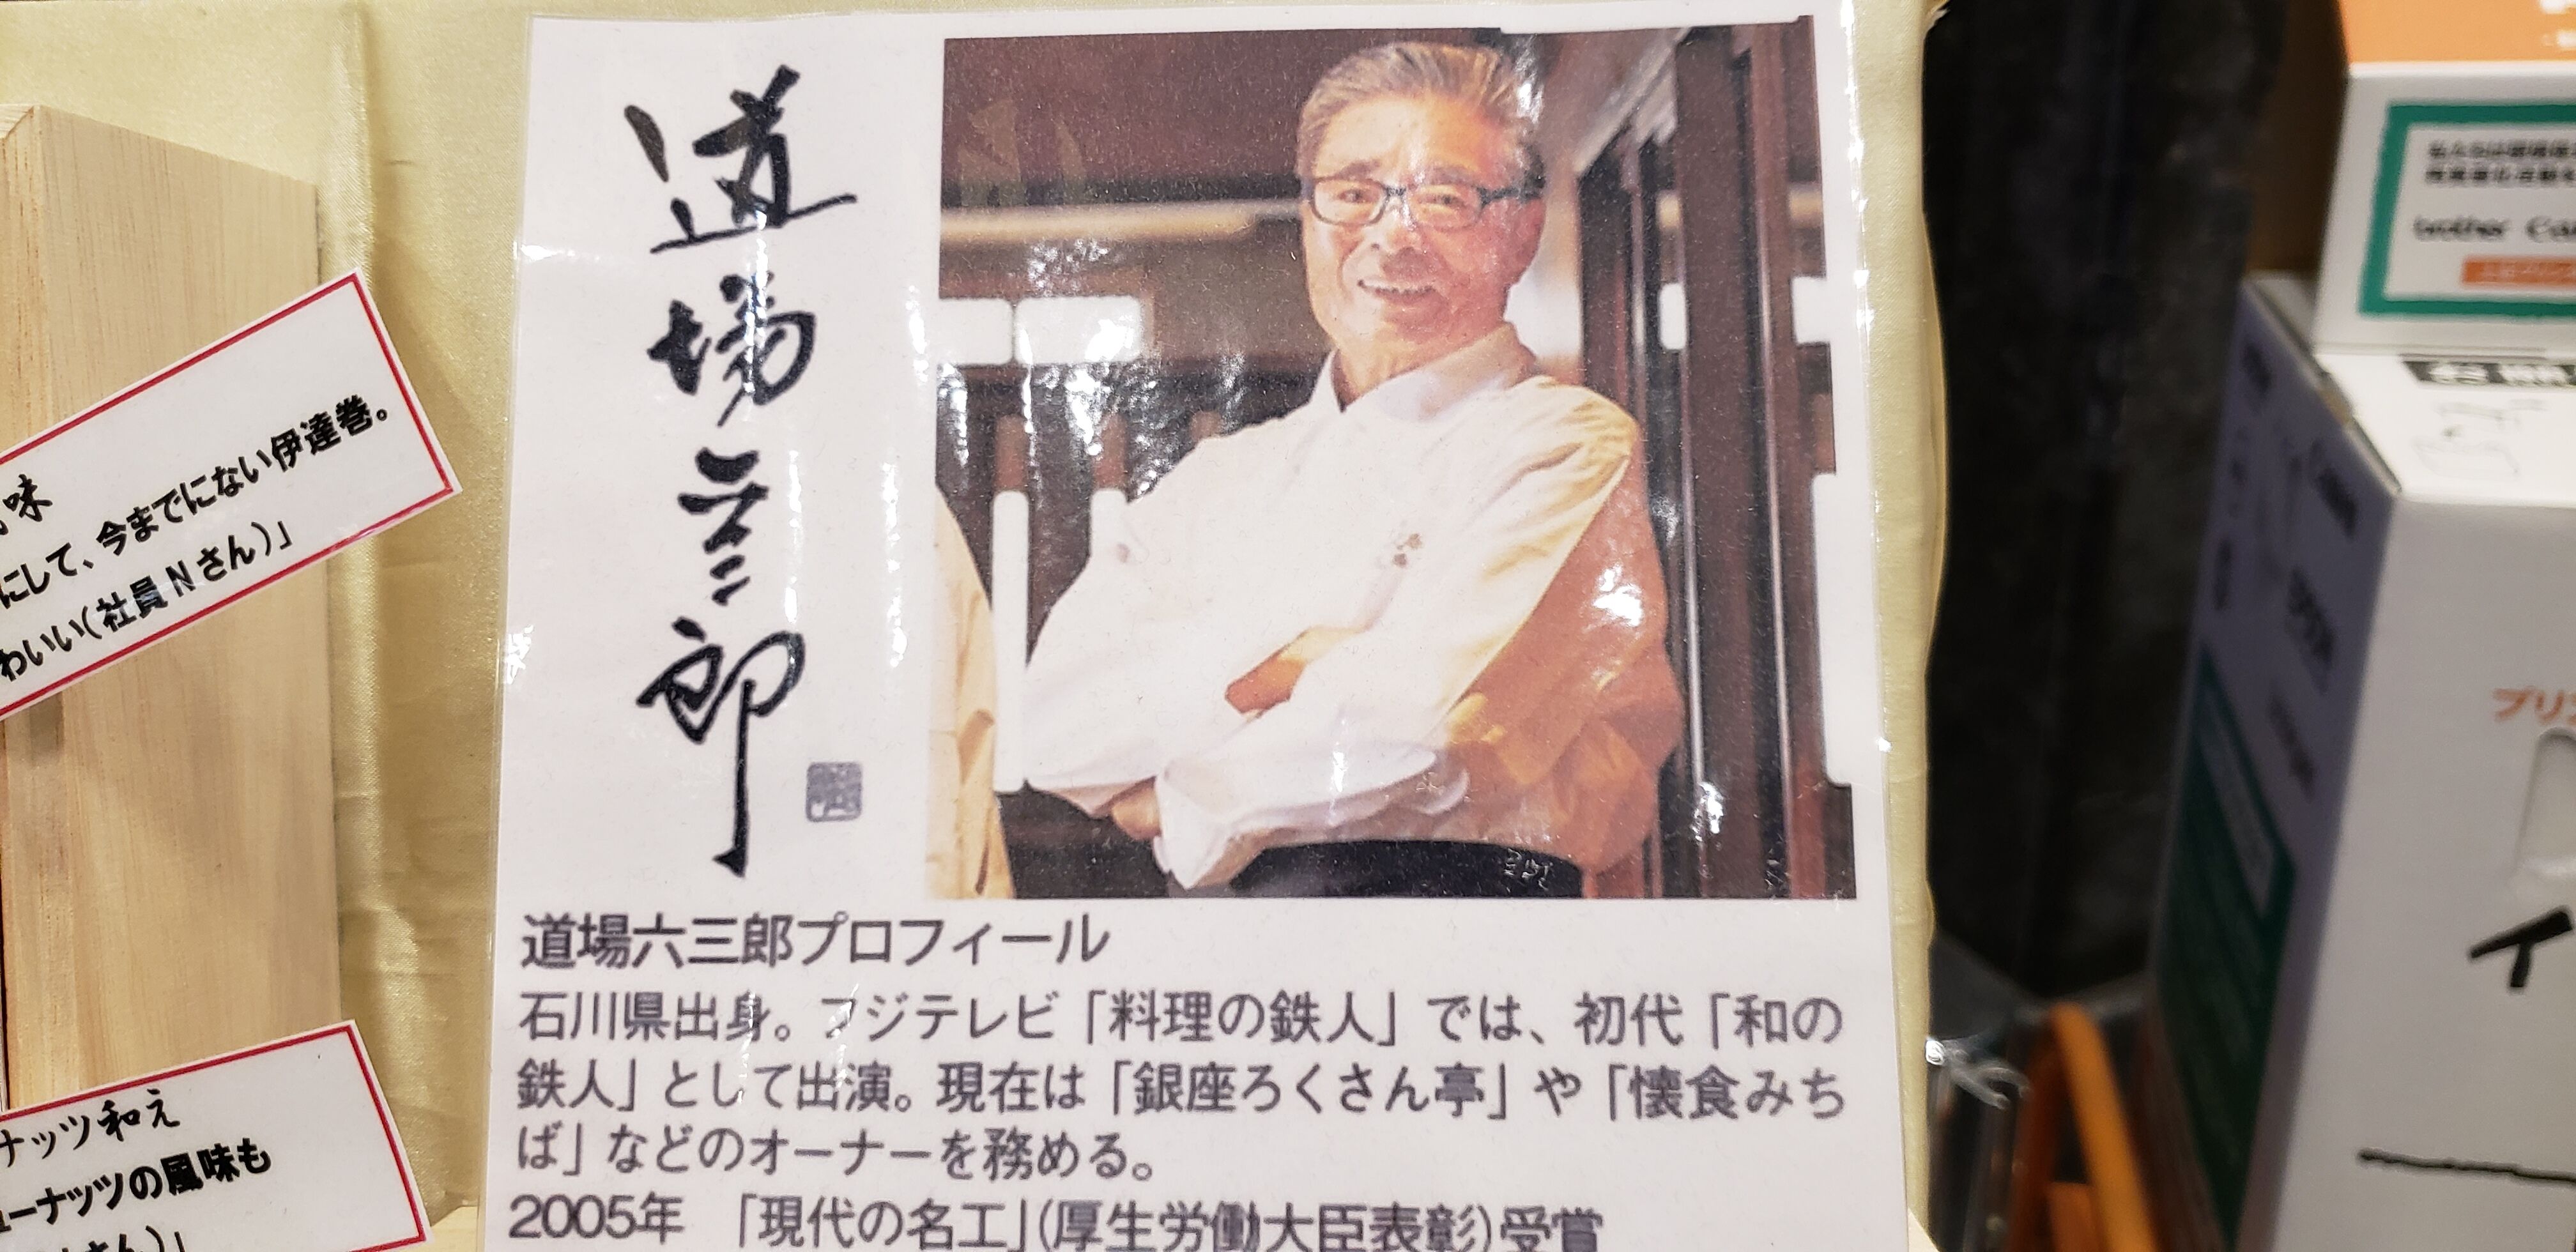 道場六三郎
道場六三郎プロフィール
石川県出身。フジテレビ「料理の鉄人」では、初代「和の
鉄人」として出演。現在は「銀座ろくさん亭」や「懐食みち
ば」などのオーナーを務める。
2005年 「現代の名工」(厚生労働大臣表彰)受賞
味
にして、今までにない伊達巻。
わいい(社員Nさん)」
ナッツ和え
ューナッツの風味も
さん)」
brother
プリ
イ